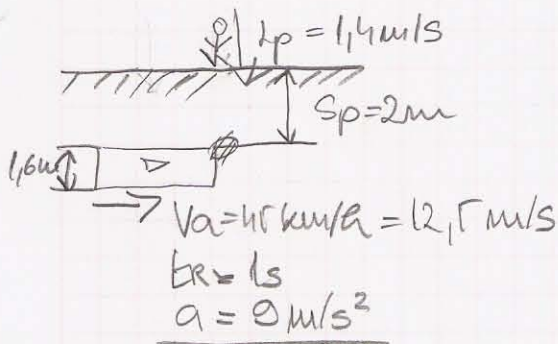 Vp = 1,4m/s
Sp=2m
1,6m
Va=45km/h = 12,5 m/s
tR = 1s
a = 9 m/s²